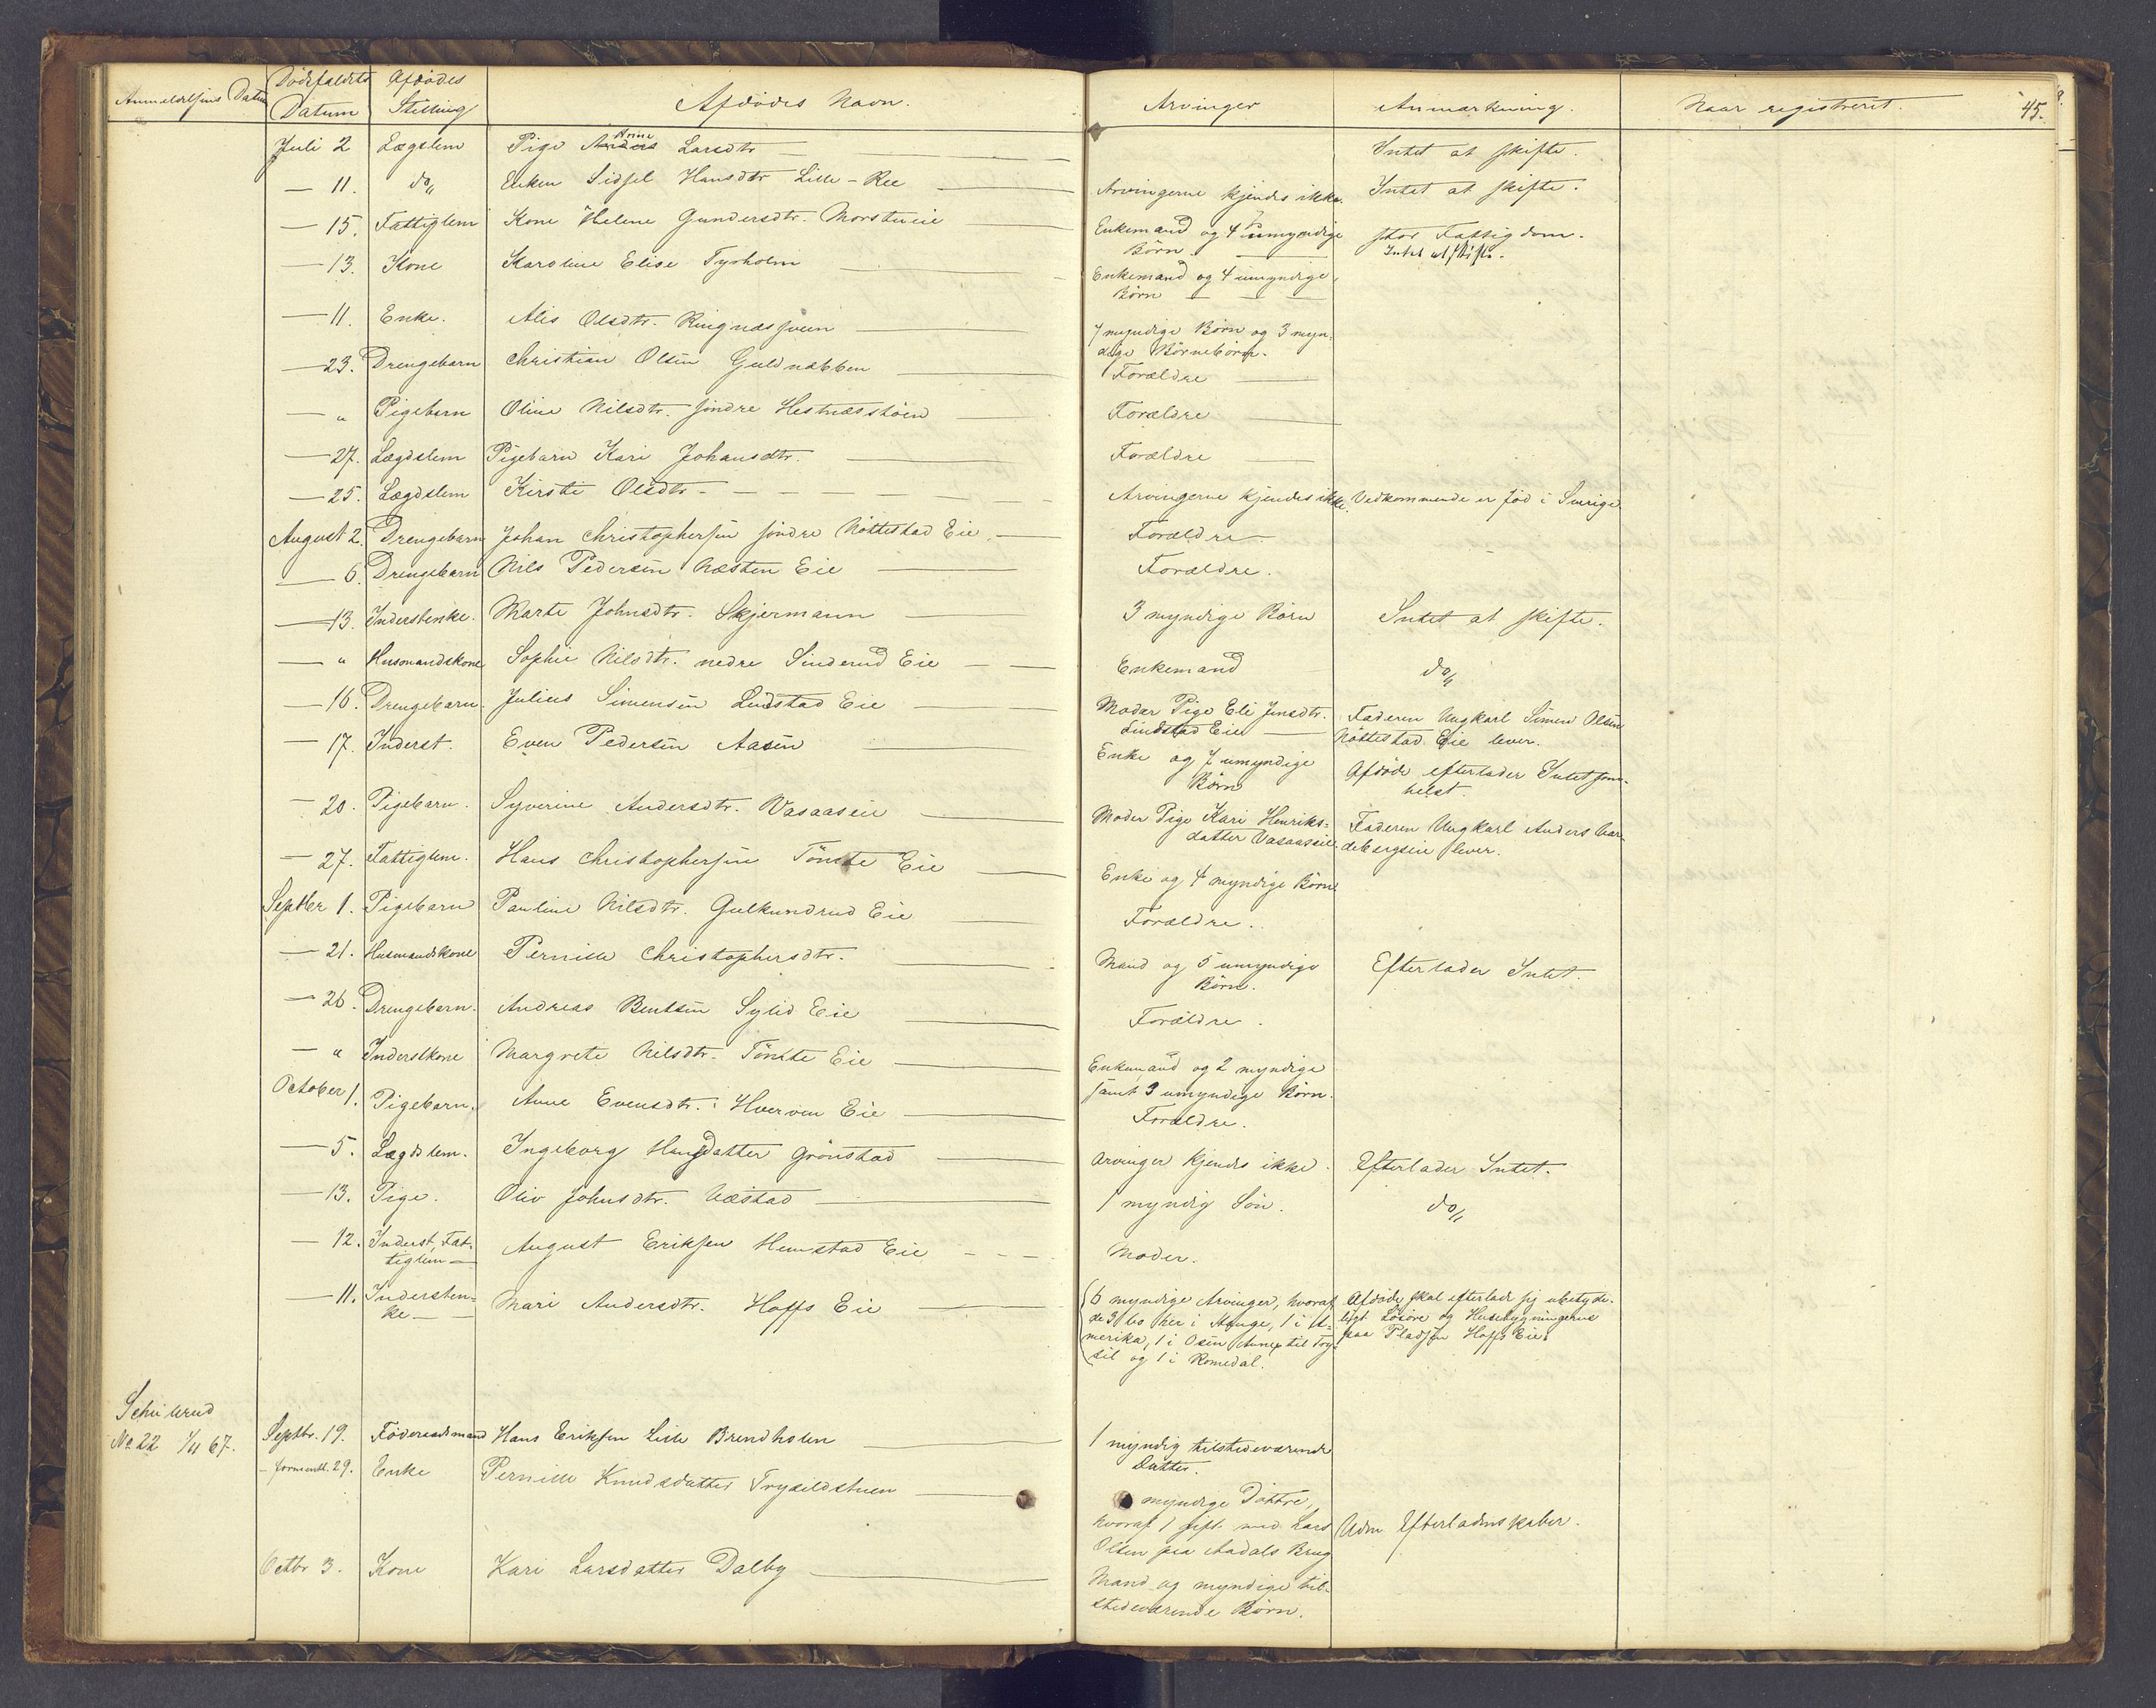 Anmeldelsens Datum Dødsfaldets Datum Afdødes Stilling Afdødes Navn. Arvinger Anmærkning. Naar registreret. 45.
Juli 2 Lægslem Pige Anders Anne Larsdtr — Intet at skifte.
— 11. do Enken Sidsel Hansdtr Lille-Ree — Arvingerne kjendes ikke. Intet at skifte.
— 15. Fattiglem Kone Helene Gundersdtr. Morstueie — Enkemand og 4 umyndige Børn. — stor Fattigdom. Intet at skifte.
— 13. Kone Karoline Elise Tyrholm — Enkemand og 4 umyndige Børn —
— 11. Enke. Alis Olsdtr. Ringnæssveen — 7 myndige Børn og 3 myndige Børnebørn.
— 23. Drengebarn Christian Olsen Guldnabben — Forældre —
— " Pigebarn Oline Nilsdtr. søndre Hestnæsstøen — Forældre —
— 27. Lægdslem Pigebarn Kari Johansdtr. — Forældre —
— 25. Lægdslem Kirsti Olsdtr. — Arvingerne kjendes ikke. Vedkommende er fød i Sverige
August 2. Drengebarn Johan Christophersen søndre Nøttestad Eie. — Forældre
— 6. Drengebarn Nils Pedersen Næsten Eie — Forældre.
— 13. Inderstenke. Marte Johnsdtr. Skjermann — 3 myndige Børn Intet at skifte.
— " Husmandskone Sophie Nilsdtr. nedre Sinderud Eie — Enkemand do
— 16. Drengebarn. Julius Simensen Lindstad Eie — Moder Pige Eli Jensdtr. Lindstad Eie — Faderen Ungkarl Simen Olsen Nøttestad Eie lever.
— 17. Inderst. Even Pedersen Aasen — Enke og 7 umyndige Børn Afdøde efterlader Intetsomhelst.
— 20. Pigebarn. Syverine Andersdtr. Vasaaseie — Moder Pige Kari Henriksdatter Vasaaseie Faderen Ungkarl Anders Vardebergseie lever.
— 27. Fattiglem. Hans Christophersen Tømte Eie — Enke og 4 myndige Børn
Septber 1. Pigebarn Pauline Nilsdtr. Gulkundrud Eie — Forældre.
— 21. Husmandskone Pernille Christophersdtr. — Mand og 5 umyndige Børn. Efterlader Intet.
— 26. Drengebarn. Andreas Bentsen Sylid Eie — Forældre.
— " Inderstkone Margrete Nilsdtr. Tømte Eie — Enkemand og 2 myndige samt 3 umyndige Børn.
October 1. Pigebarn. Anne Evensdtr. Hverven Eie — Forældre.
— 5. Lægdslem. Ingeborg Hansdatter Grønstad — Arvinger kjendes ikke. Efterlader Intet.
— 13. Pige. Oliv Johnsdtr. Næstad — 1 myndig Søn. do
— 12. Inderst, Fattiglem — August Eriksen Hemstad Eie — Moder.
— 11. Inderstenke — Mari Andersdtr. Hoffs Eie — 6 myndige Arvinger, hvoraf de 3 bo her i Stange, 1 i Amerika, 1 i Osen Annex til Trysil og 1 i Romedal. Afdøde skal efterlade sig ubetydeligt Løsøre og Husebygningerne paa Pladsen Hoffs Eie.
Schiilerud
No 22 1/11 67. Septbr. 19. Føderaadsmand Hans Eriksen Lille Brendholen — 1 myndig tilstedeværende Datter.
— formentl. 29. Enke Pernille Knudsdatter Trysildstuen — myndige Døttre, hvoraf 1 gift med Lars Olsen paa Aadals Brug Uden Efterladenskaber.
Octbr 3. Kone Kari Larsdatter Dalby — Mand og myndige tilstedeværende Børn.